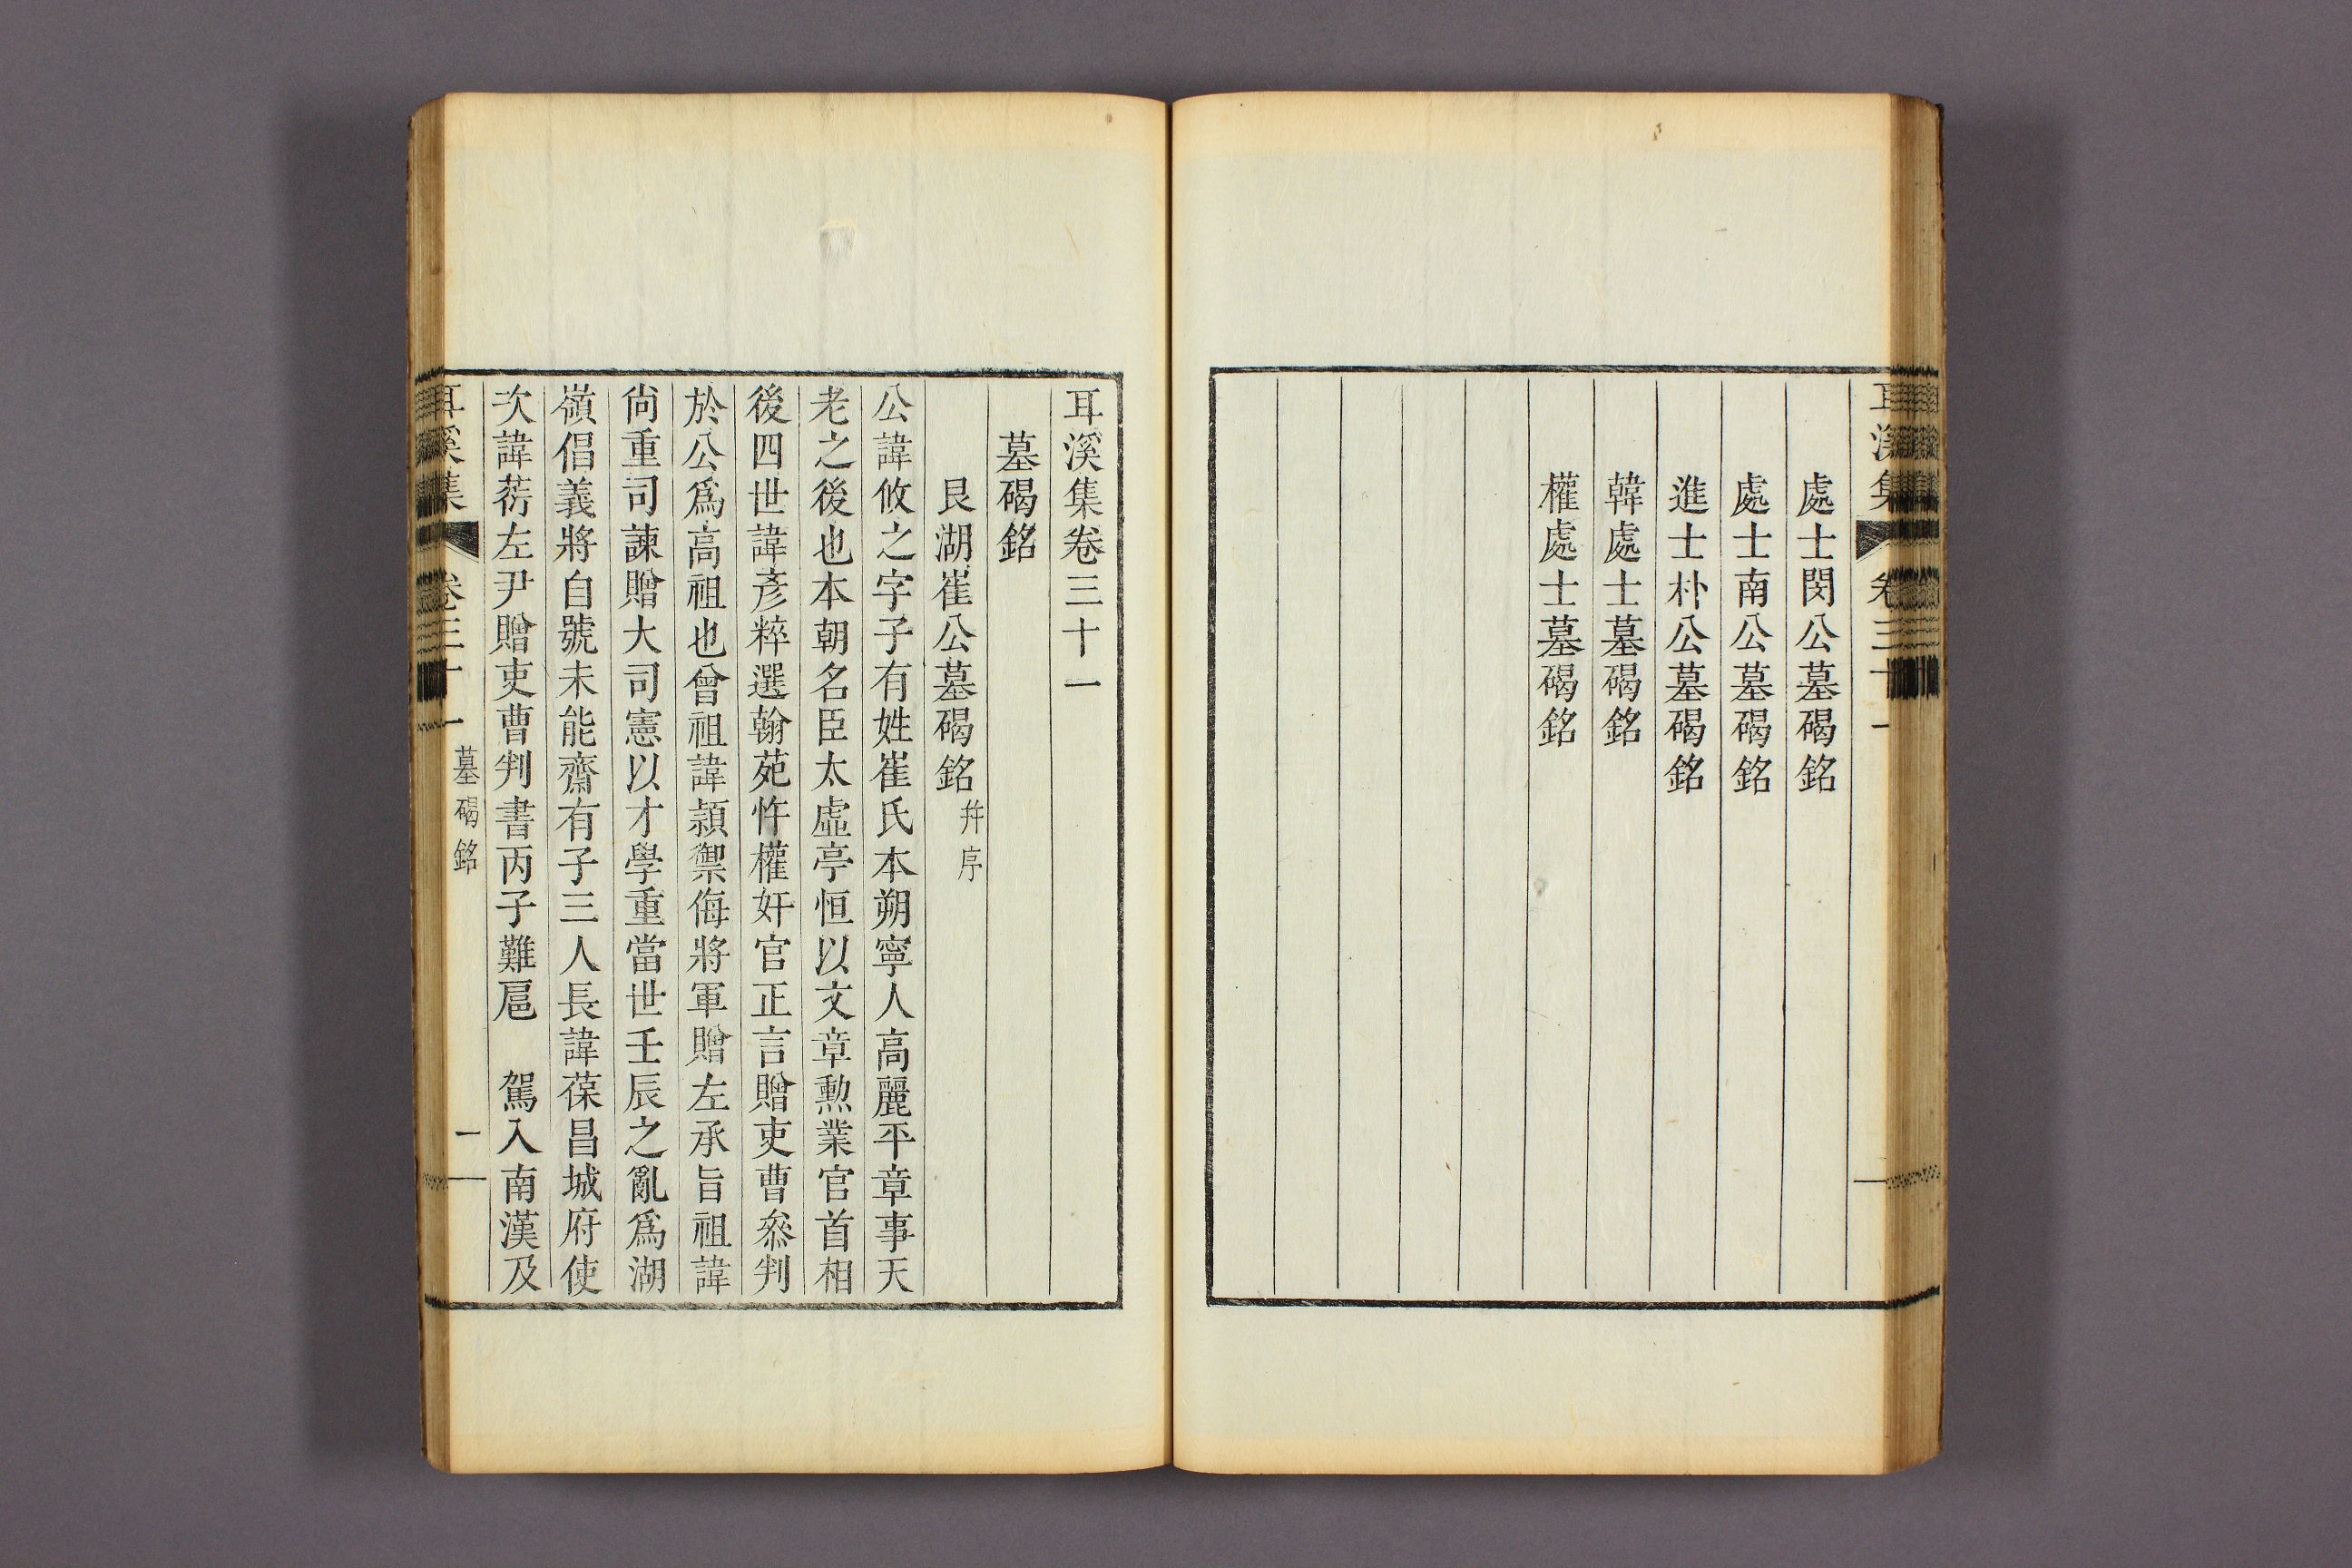 耳溪集 卷三十一
處士閔公墓碣銘
處士南公墓碣銘
進士朴公墓碣銘
韓處士墓碣銘
權處士墓碣銘
耳溪集卷三十一
墓碣銘
艮湖崔公墓碣銘 幷序
公諱攸之字子有姓崔氏本朔寧人高麗平章事天
老之後也本朝名臣太虛亭恒以文章勲業官首相
後四世諱彥粹選翰苑忤權奸官正言贈吏曹叅判
於公爲高祖也曾祖諱潁禦侮將軍贈左承旨祖諱
尙重司諫贈大司憲以才學重當世壬辰之亂爲湖
嶺倡義將自號未能齋有子三人長諱葆昌城府使
次諱蒶左尹贈吏曹判書丙子難扈 駕入南漢及
耳溪集 卷三十一 墓碣銘 一